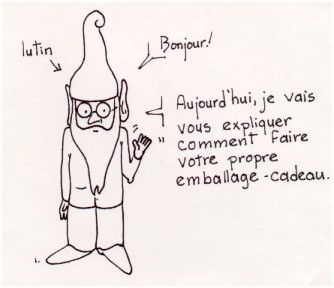 lutin
Bonjour!
Aujourd'hui, je vais
vous expliquer
comment faire
votre propre
emballage-cadeau.
1.